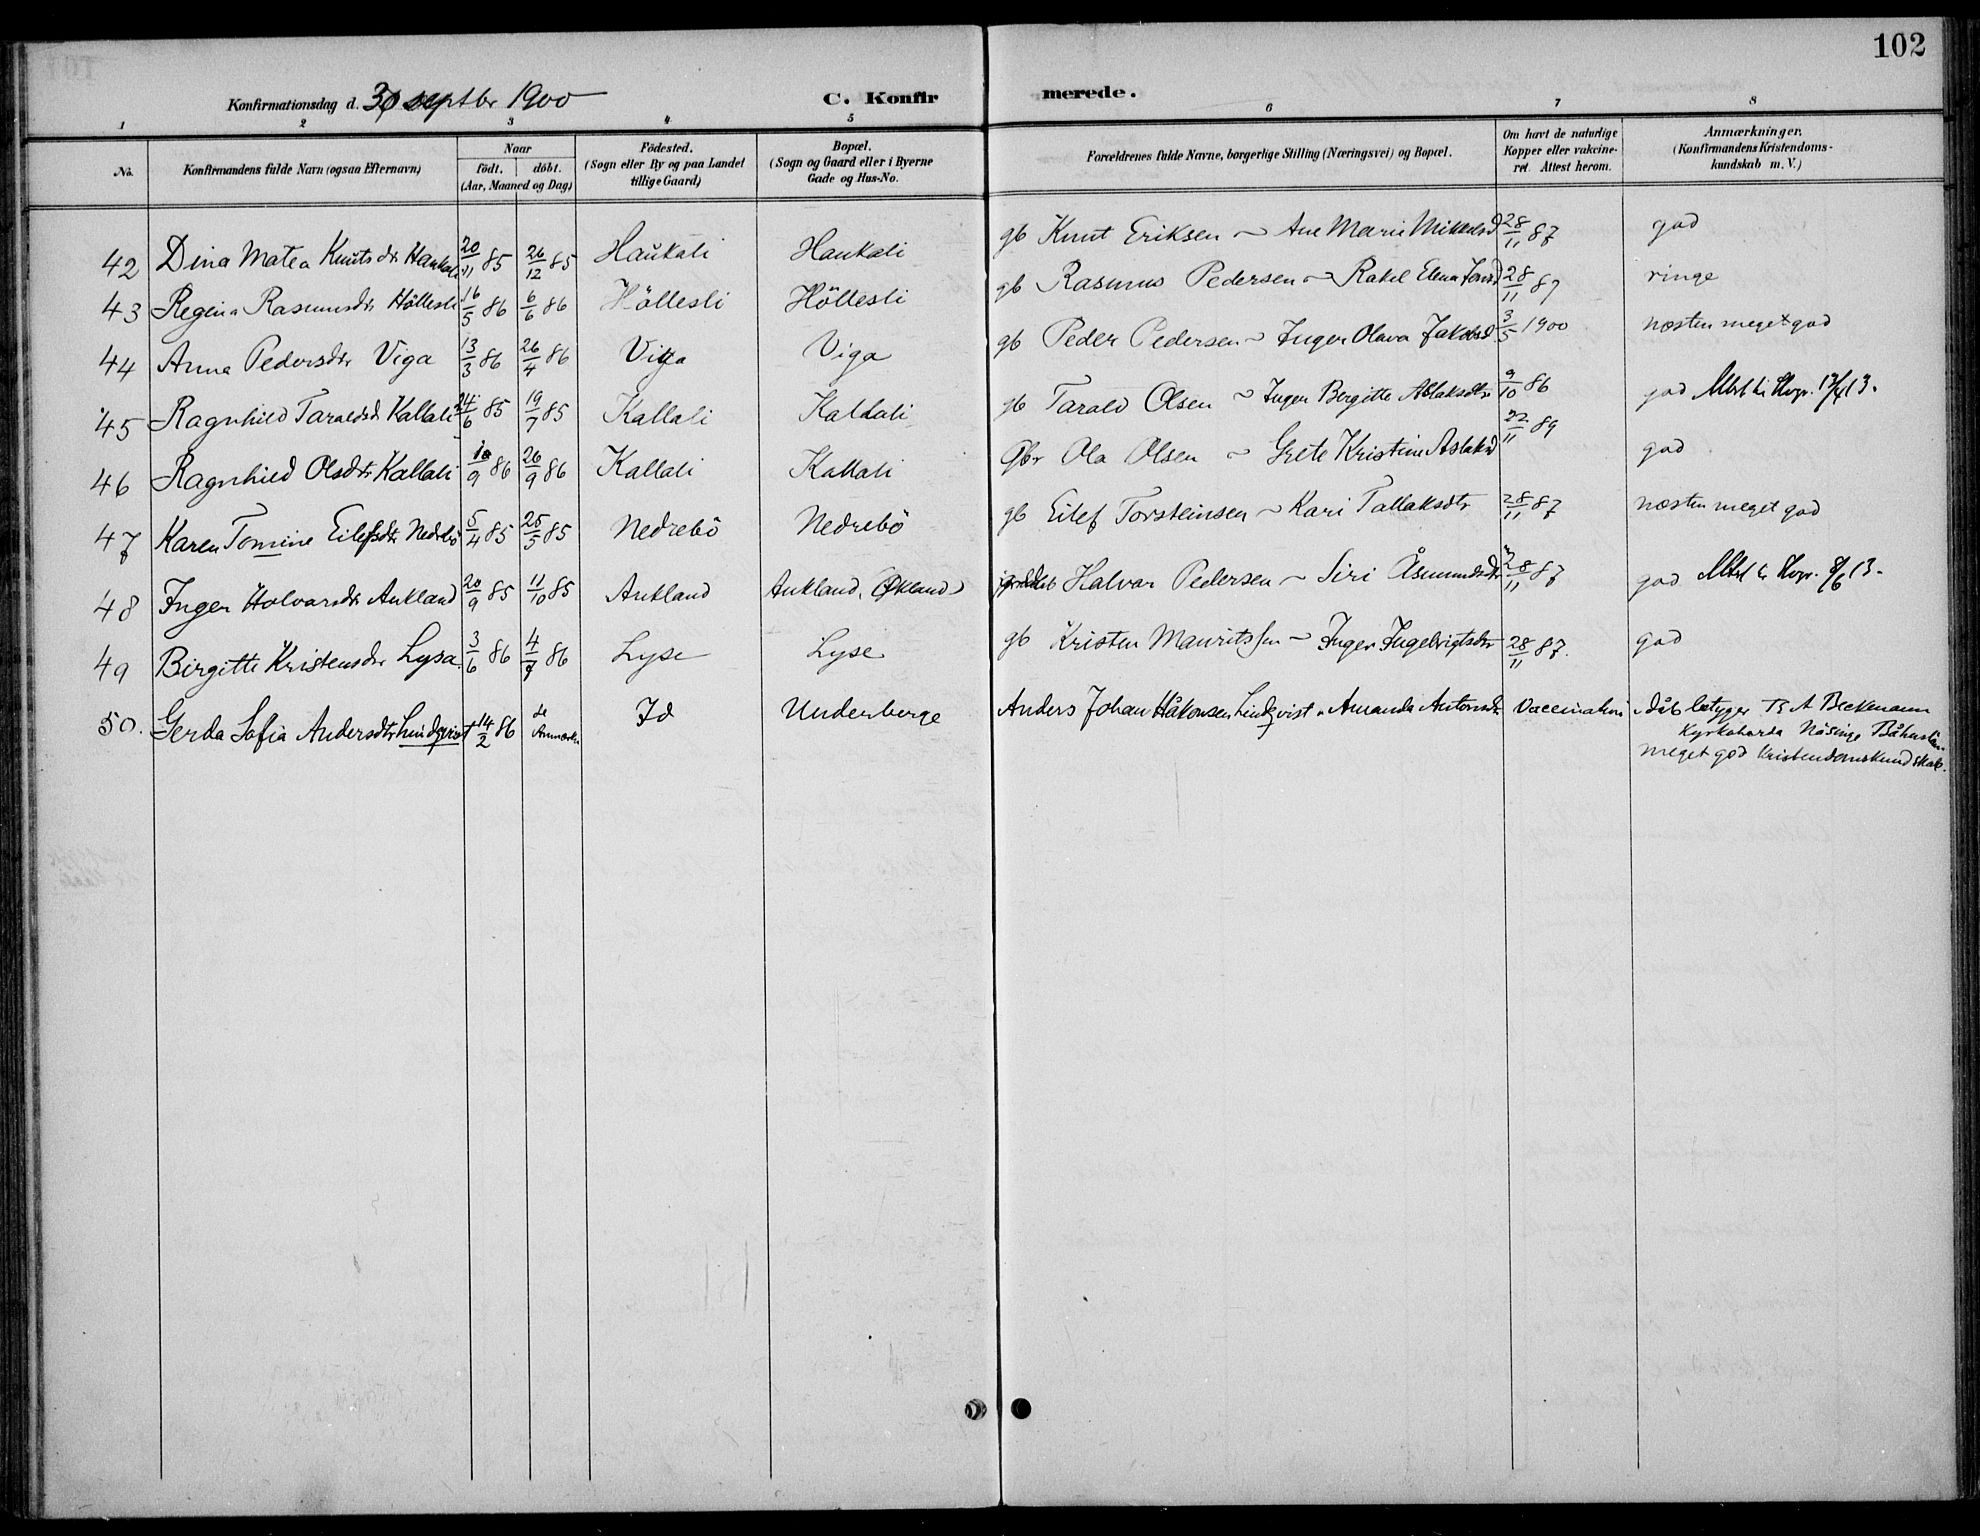 102
Konfirmationsdag d. 30 septbr 1900 C. Konfir merede.
1 2 3 4 5 6 7 8
No. Konfirmandens fulde Navn (ogsaa Efternavn) Naar födt. döbt. (Aar, Maaned og Dag) Födested. (Sogn eller By og paa Landet tillige Gaard) Bopæl. (Sogn og Gaard eller i Byerne Gade og Hus-No. Forældrenes fulde Navne, borgerlige Stilling (Næringsvei) og Bopæl. Om havt de naturlige Kopper eller vakcineret. Attest herom. Anmærkninger. (Konfirmandens Kristendomskundskab m. V.)
42 Dina Matea Knutsdtr Haukali 20/11 85 26/12 85 Haukali Haukali gb Knut Eriksen ~ Ane Marie Mikkelsd 28/11 87 god
43 Regina Rasmusdtr Höllesli 16/5 86 6/6 86 Höllesli Höllesli gb Rasmus Pedersen ~ Rakel Elena Jonsd 28/11 87 ringe
44 Anna Pedersdtr Viga 13/3 86 26/4 86 Viga Viga gb Peder Pedersen ~ Inger Olava Jakobsd 3/5 1900 næsten meget god
45 Ragnhild Taraldsd Kallali 24/6 85 19/7 85 Kallali Kallali gb Tarald Olsen ~ Inger Bergitte Aslaksdtr 9/10 86 god 13.
46 Ragnhild Olsdtr Kallali 10/9 86 26/9 86 Kallali Kallali Gbr Ola Olsen ~ Grete Kristine Aslaksd 22/11 89 god
47 Karen Tomine Eilefsdtr Nedrebö 5/4 85 25/5 85 Nedrebö Nedrebö gb Eilef Torsteinsen ~ Kari Tollaksdtr 28/11 87 næsten meget god
48 Inger Holvarsdtr Aukland 20/9 85 11/10 85 Aukland Aukland, (Økland) Halvar Pedersen ~ Siri Åsmundsdtr 28/11 87 god 8/6 13.
49 Birgitte Kristensdtr Lysa 3/6 86 4/7 86 Lyse Lyse gb Kristen Mauritssen ~ Inger Ingebrigtsdtr 28/11 87. god
50. Gerda Sofia Andersdtr Lindqvist 14/2 86 se Anmærkn Id Underberge Anders Johan Håkonsen Lindqvist o Amanda Antonsdtr Vaccinations o dåbsbetyger T A Beckmann
Kyrkoharda Näsinge Båhuslän.
meget god Kristendomskundskab.